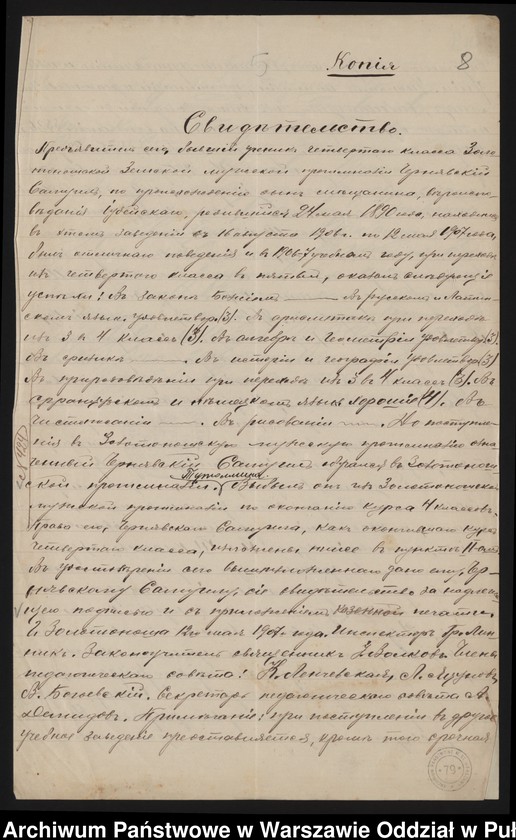 Копія
8
Свидѣтельство.
Предъявитель сего, бывшій ученикъ четвертаго класса Золо-
тоношской мужской прогимназіи Чернявскій
Самуилъ, по происхожденію сынъ мѣщанина, вѣроиспо-
вѣданія Іудейскаго, родившійся 24 мая 1890 года, находясь
въ этомъ заведеніи съ 16 августа 1906 г. по 12 мая 1907 года,
былъ отличнаго поведенія и въ 1906/7 учебномъ году, при переходѣ
изъ четвертаго класса въ пятый, оказалъ слѣдующіе
успѣхи: Въ законѣ Божіемъ — Въ русскомъ и Латин-
скомъ языкѣ удовлетвор (3). Въ ариѳметикѣ при переходѣ
изъ 3 въ 4 классъ (3). Въ алгебрѣ и Геометріи удовлетвор (3).
Въ физикѣ —. Въ исторіи и географіи удовлетвор (3)
Въ природовѣденіи при переходѣ изъ 3 въ 4 классъ (3). Въ
французскомъ и нѣмецкомъ языкѣ хорошія (4). Въ
чистописаніи — . Въ рисованіи — . До поступле-
нія въ Золотоношскую мужскую прогимназію озна-
ченный Чернявскій Самуилъ обучался въ Золотонош-
ской прогимназіи. Выбылъ онъ изъ Золотоношской
мужской прогимназіи по окончаніи курса 4 классовъ.
Права его, Чернявскаго Самуила, какъ окончившаго курсъ
четвертаго класса, изложены ниже въ пунктѣ II
Въ удостовѣреніи сего вышеизложеннаго дано ему, Чер-
нявскому Самуилу, сіе свидѣтельство за надлежа-
щею подписью и съ приложеніемъ казенной печати.
Г. Золотоноша 12 мая 1907 года. Инспекторъ Гр.
Законоучитель священникъ Волковъ. Члены
педагогическаго совѣта: К.
В. Богаевскій. Секретарь педагогическаго совѣта А.
Давидовъ. Примѣчаніе: при поступленіи въ другое
учебное заведеніе предоставляется, кромѣ того
79
Archiwum Państwowe w Warszawie Oddział w Puł